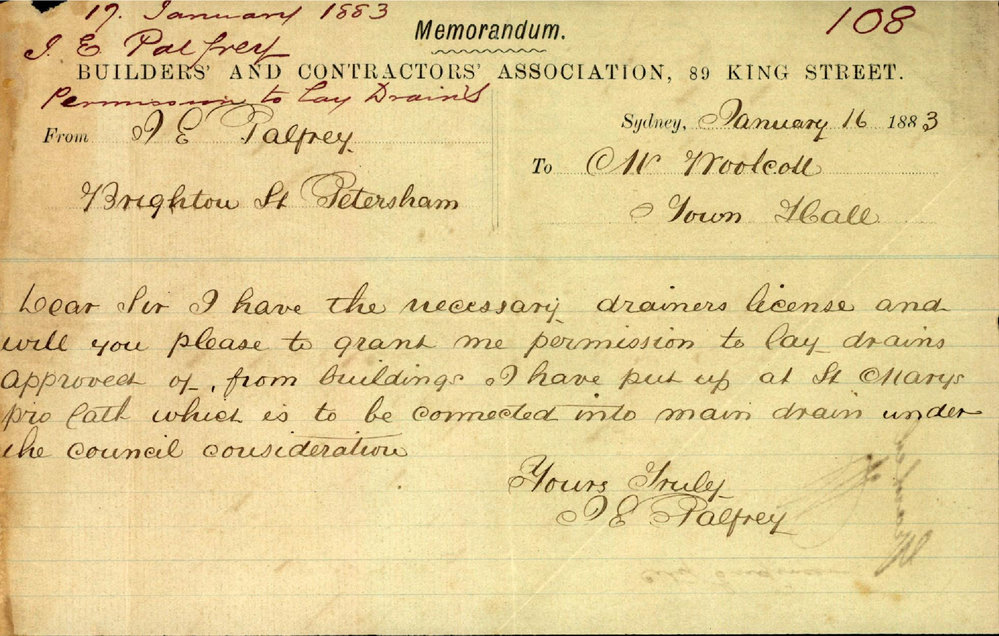 17. January 1883
108
J. E. Palfrey
Memorandum.
BUILDERS' AND CONTRACTORS' ASSOCIATION, 89 KING STREET.
Permission to lay Drains
From J E Palfrey
Brighton St Petersham
Sydney, January 16 1883
To Mr Woolcott
Town Hall
Dear Sir I have the necessary drainers license and
will you please to grant me permission to lay drains
approved of, from buildings I have put up at St Marys
pro Cath which is to be connected into main drain under
the council consideration
Yours Truly
J E Palfrey